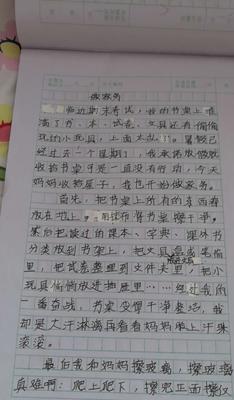 做家务
临近期末考试，我的书桌上堆
满了书、本、试卷、文具还有偷偷
玩的小玩具，上面木以 。暑假已
经过去一个星期了，我承诺放假就
收拾书桌可是一直没有行动，今天
妈妈收拾屋子，我也开始做家务。
首先，把书桌上所有的东西都
放在地上，用抹布将书桌擦干净。
然后把读过的课本、字典、课外书
分类放到书架上，把文具
里，把试卷整理到文件夹里，把小
玩具偷偷放进抽屉里……经过我的
一番奋战，书桌变得干净整洁，我
却是大汗淋漓再看看妈妈脸上汗珠
滚滚。
最后我和妈妈擦玻璃，擦玻璃
真难啊：爬上爬下，擦完正面擦反